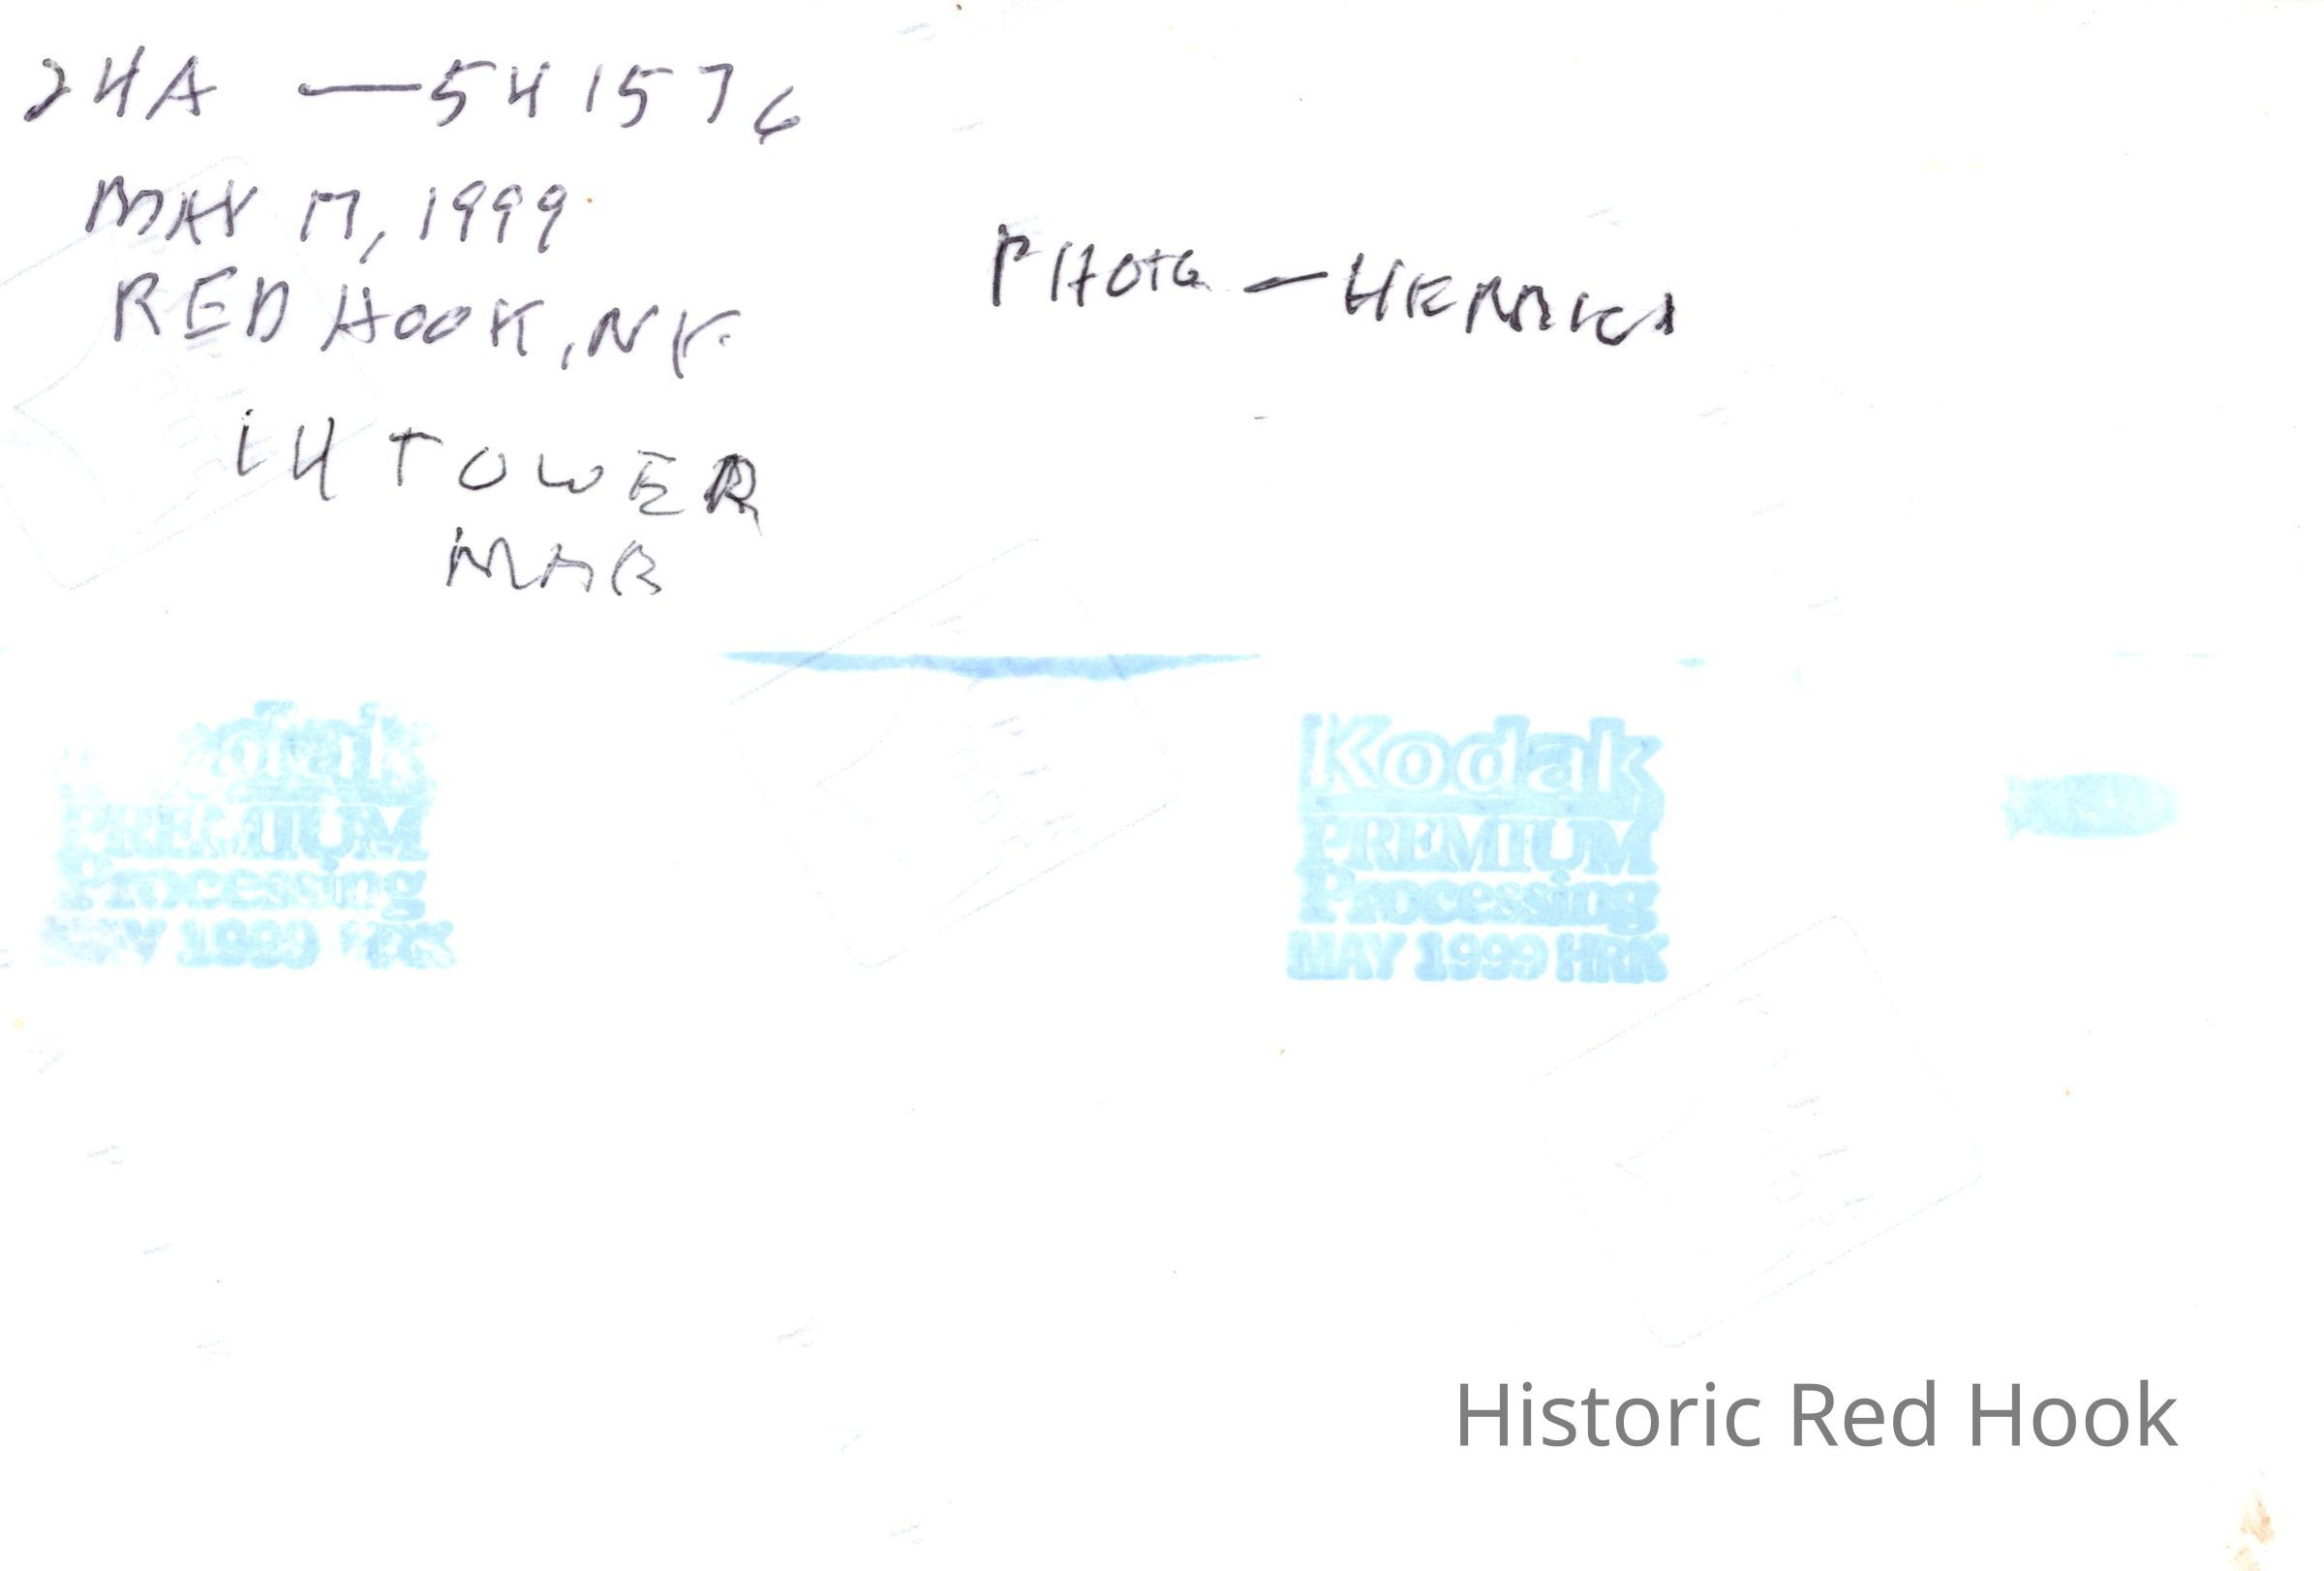 24A — 541576
MAY 17, 1999
RED HOOK, NY.
PHOTO — HERRICK
14 TOWER
MAR
Kodak
PREMIUM
Processing
1999
Kodak
PREMIUM
Processing
MAY 1999 HRK
Historic Red Hook